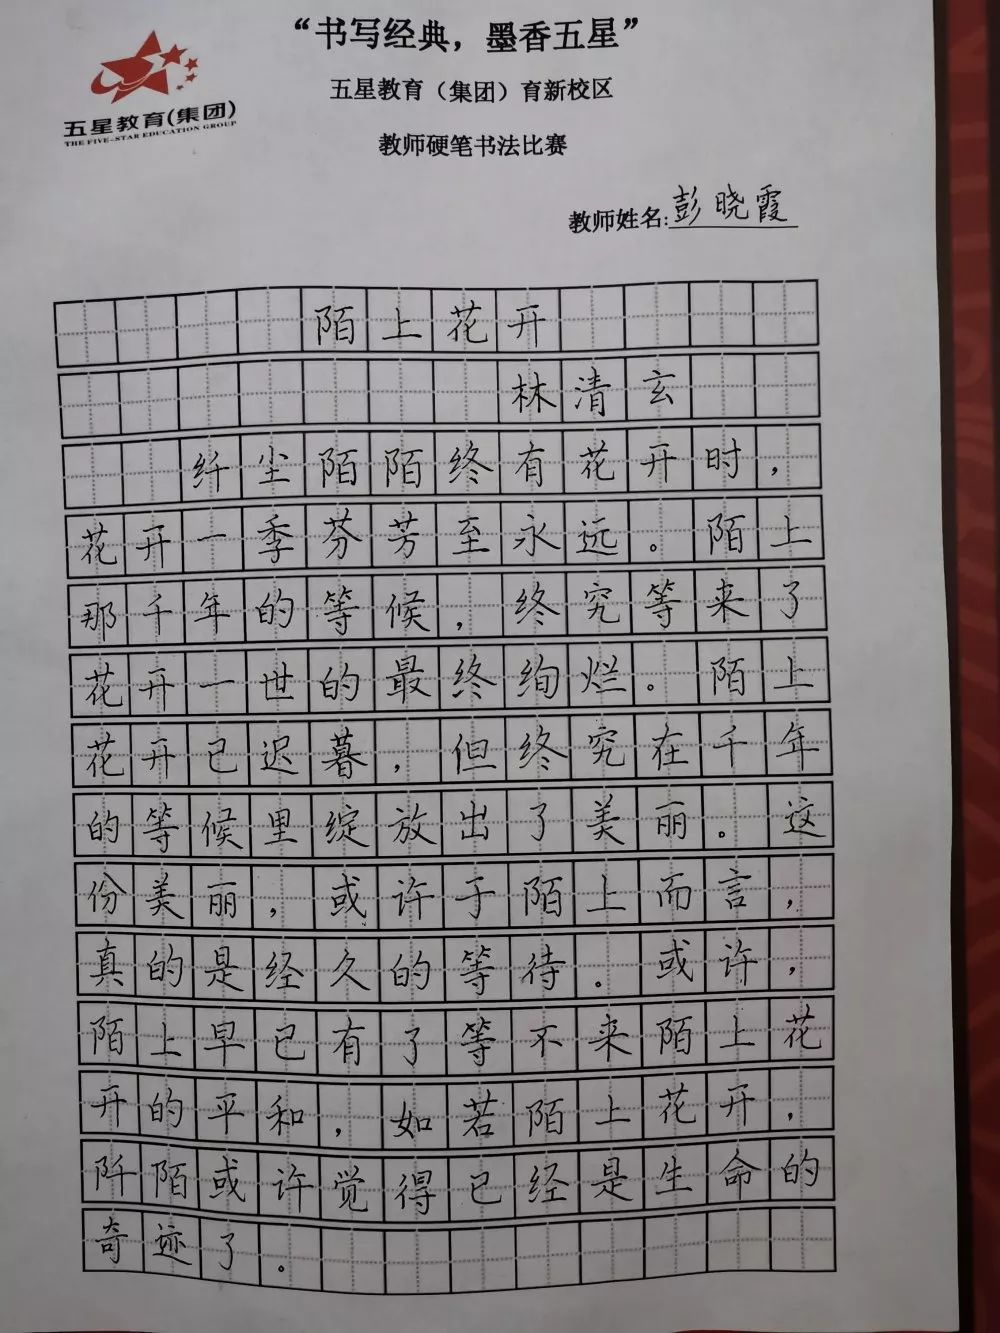 “书写经典，墨香五星”
五星教育(集团)
THE FIVE-STAR EDUCATION GROUP
五星教育（集团）育新校区
教师硬笔书法比赛
教师姓名:彭晓霞
陌上花开
林清玄
纤尘陌陌终有花开时，
花开一季芬芳至永远。陌上
那千年的等候，终究等来了
花开一世的最终绚烂。陌上
花开已迟暮，但终究在千年
的等候里绽放出了美丽。这
份美丽，或许于陌上而言，
真的是经久的等待。或许，
陌上早已有了等不来陌上花
开的平和，如若陌上花开，
阡陌或许觉得已经是生命的
奇迹了。